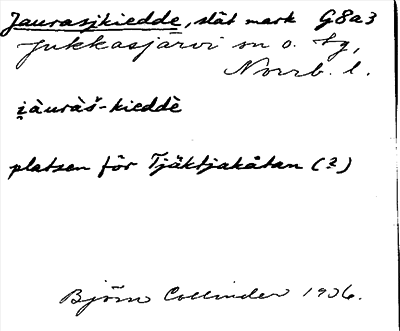 Jaurasjkiedde, slät mark G8a3
Jukkasjärvi sn o. tg,
Norrb. l.
i̯àuràš-kieddè
platsen för Tjäktjakåtan (?)
Björn Collinder 1906.